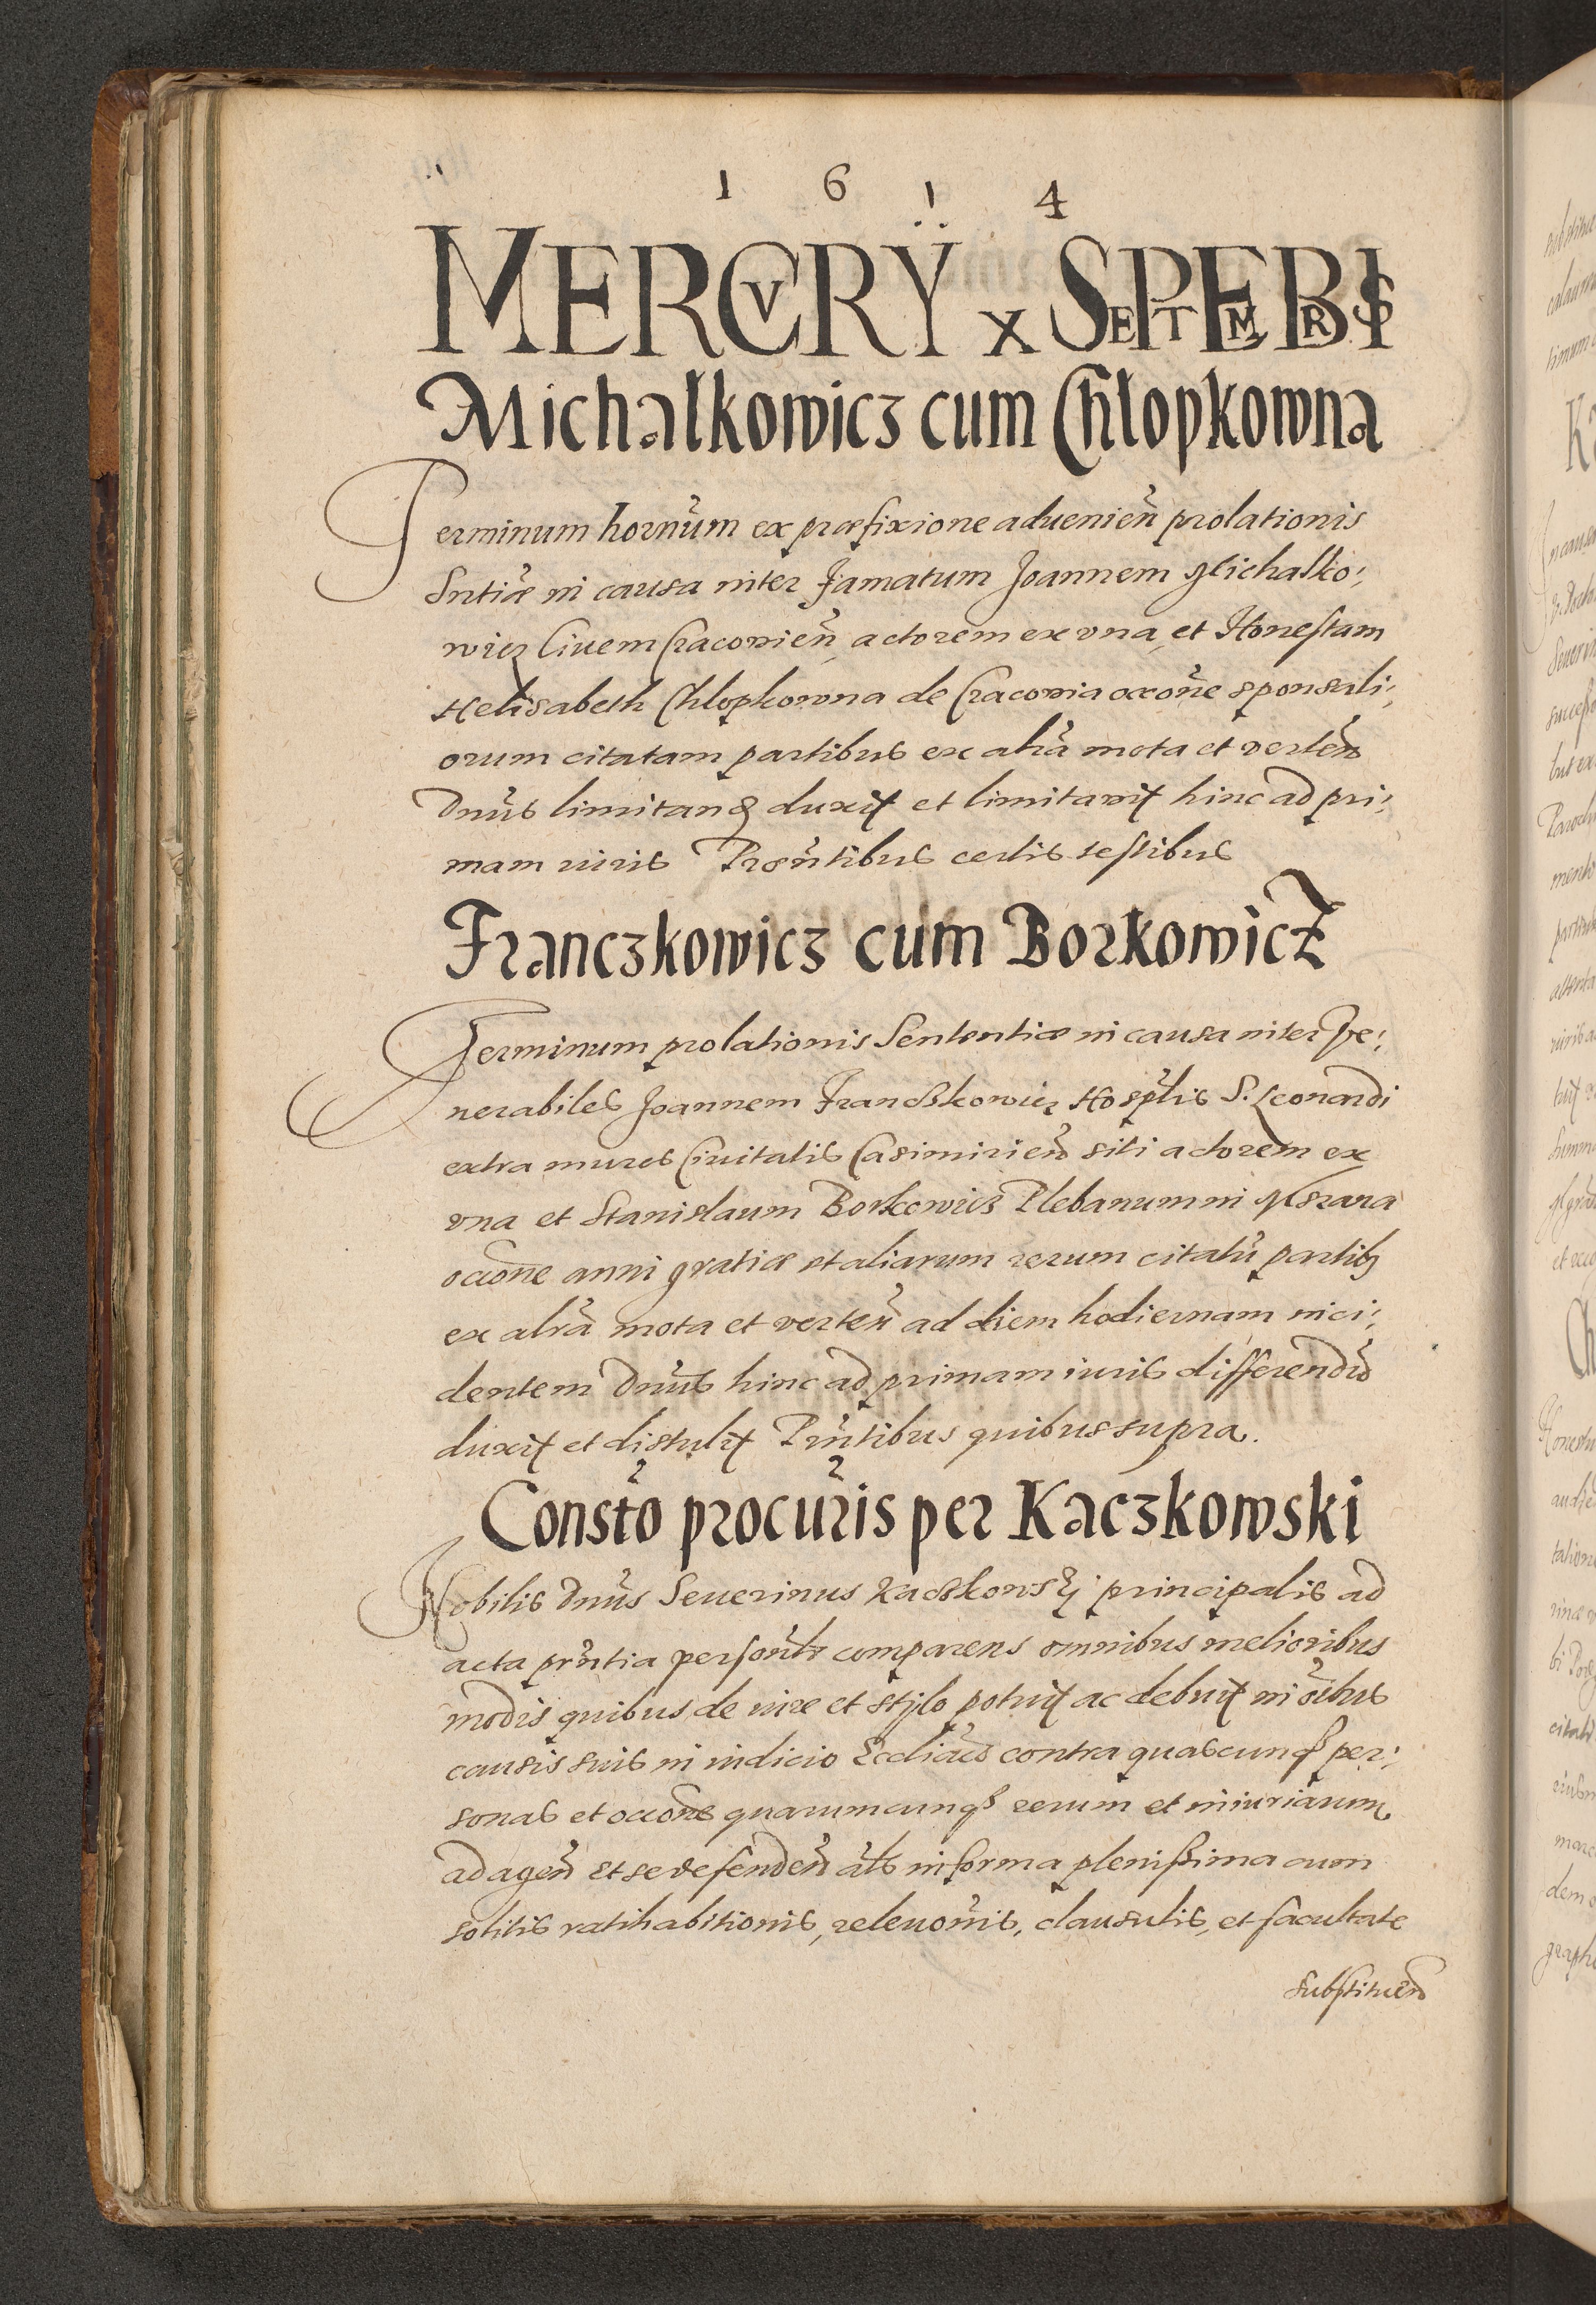 1 6 1 4
MERCVRŸ X SEPTEMBRIS
Michalkowicz cum Chlopkowna
Terminum hornũm ex præfixione aduenieñ prolationis
Sntiæ in causa inter Famatum Joannem Michalko:
wicz Ciuem Cracouieñ, actorem ex vna, et Honestam
Helisabeth Chlopkowna de Cracouia occoñe sponsali:
orum citatam partibus ex altrã mota et verteñ
Dnũs limitanđ duxit et limitauit hinc ad pri:
mam iuris Præñtibus certis testibus
Franczkowicz cum Borkowicz
Terminum prolationis Sententiæ in causa inter Ve:
nerabiles Joannem Franczkowicz Hosplis S. Leonardi
extra muros Ciuitatis Casimirieñ siti actorem ex
vna et Stanislaum Borkowicz Plebanum in Mszana
occoñe anni gratiæ et aliarum rerum citatũ partibq
ex altrã mota et verteñ ad diem hodiernam inci:
dentem Dnũs hinc ad primam iuris differendũ
duxit et distulit Prñtibus quibus supra.
Constõ procuris per Kaczkowski
Nobilis Dnũs Seuerinus Kaczkowskj principalis ad
acta prñtia persoñlr comparens omnibus melioribus
modis quibus de iure et stylo potuit ac debuit in oĩbus
causis suis in iudicio Eccliãs contra quascunq̃ per:
sonas et occoñe quarumcunq̃ rerum et iniuriarum
ad agenđ et se defendenđ ats in forma plenissima cum
solitis ratihabitionis, releuoñis, clausulis, et facultate
substituenđ